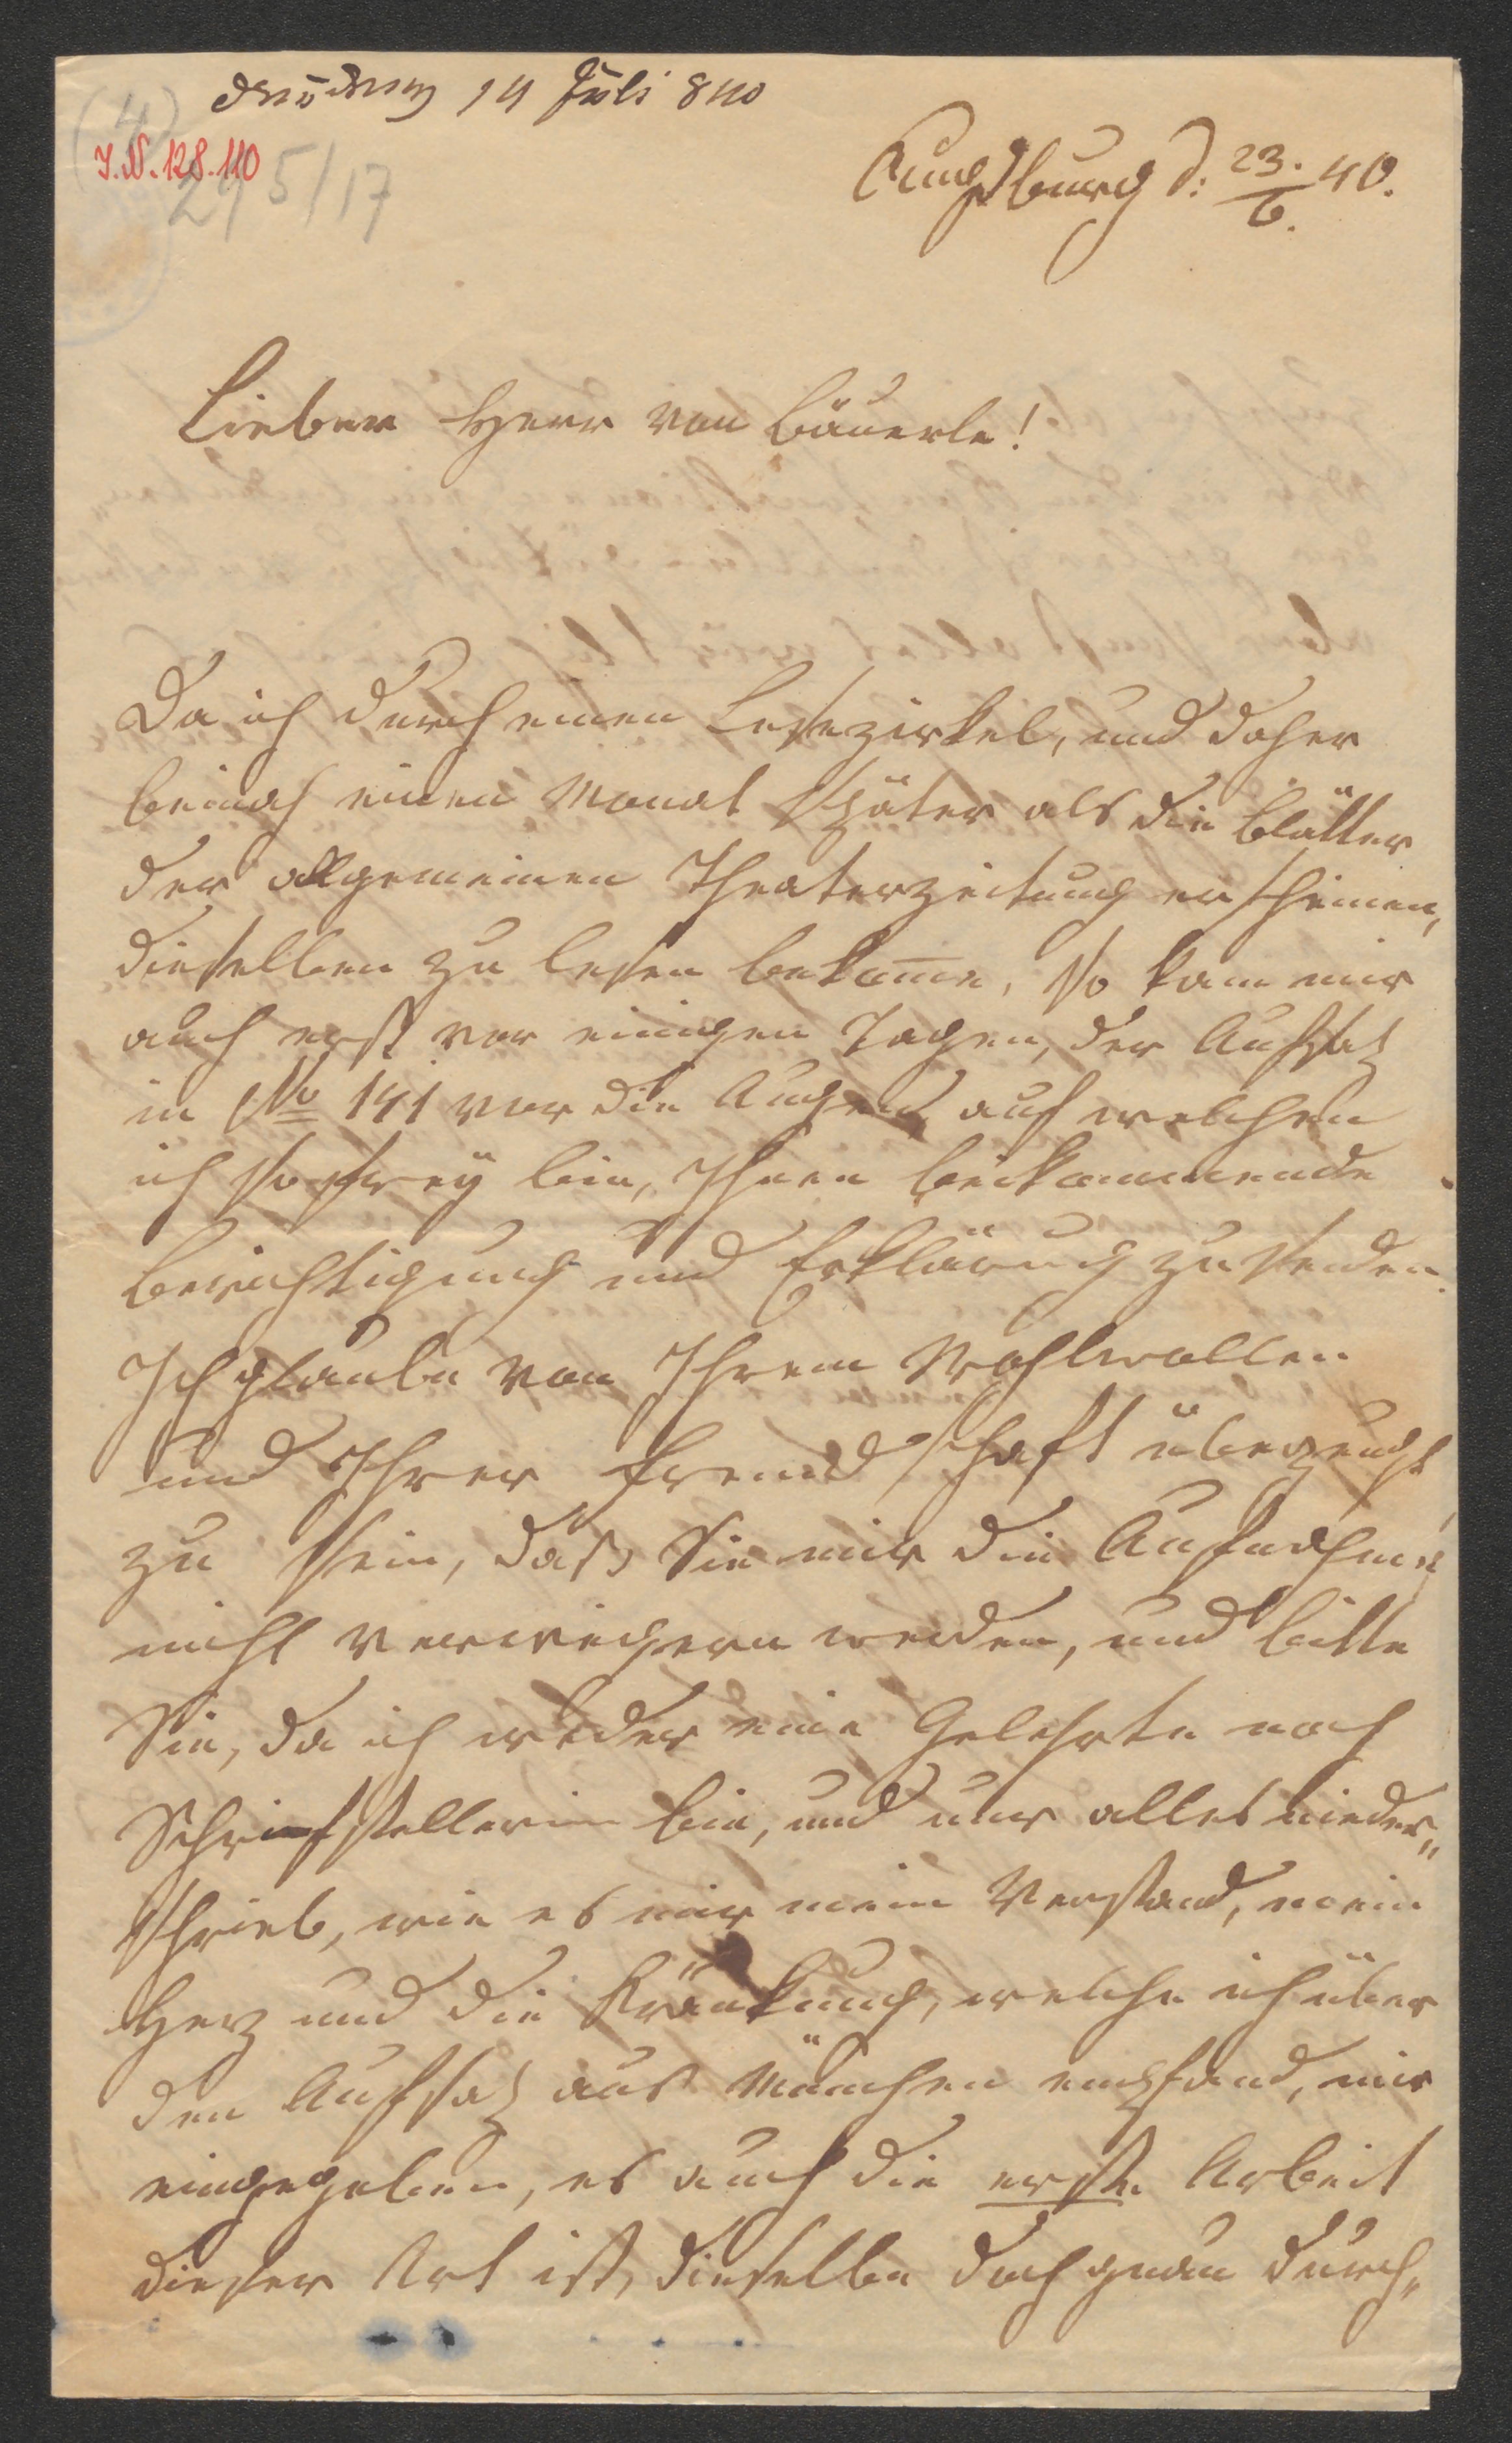 14 Juli 840
(4)
I.N. 128.110
295/17
Augsburg d: 23./6. 40.
Lieber Herr von Bäuerle!
Da ich durch einen Lesezirkel, und daher
beinah einen Monat später als die Blätter
der allgemeinen Theaterzeitung erscheinen,
dieselben zu lesen bekom̅e, so kam mir
auch erst vor einigen Tagen, der Aufsatz
in No 141 vor die Augen, auf welchen
ich so frey bin, Ihnen beikommende
Berichtigung und Erklärung zu senden.
Ich glaube von Ihrem Wohlwollen
und Ihrer Freundschaft überzeugt
zu sein, daß Sie mir die Aufnahme
nicht verweigern werden, und bitte
Sie, da ich weder eine Gelehrte noch
Schriftstellerin bin, und nur alles nieder„
schrieb, wie es mir mein Verstand, mein
Herz und die Kränkung, welche ich über
den Aufsatz aus München empfand, mir
eingegeben, es auch die erste Arbeit
dieser Art ist, dieselbe doch genau durch„